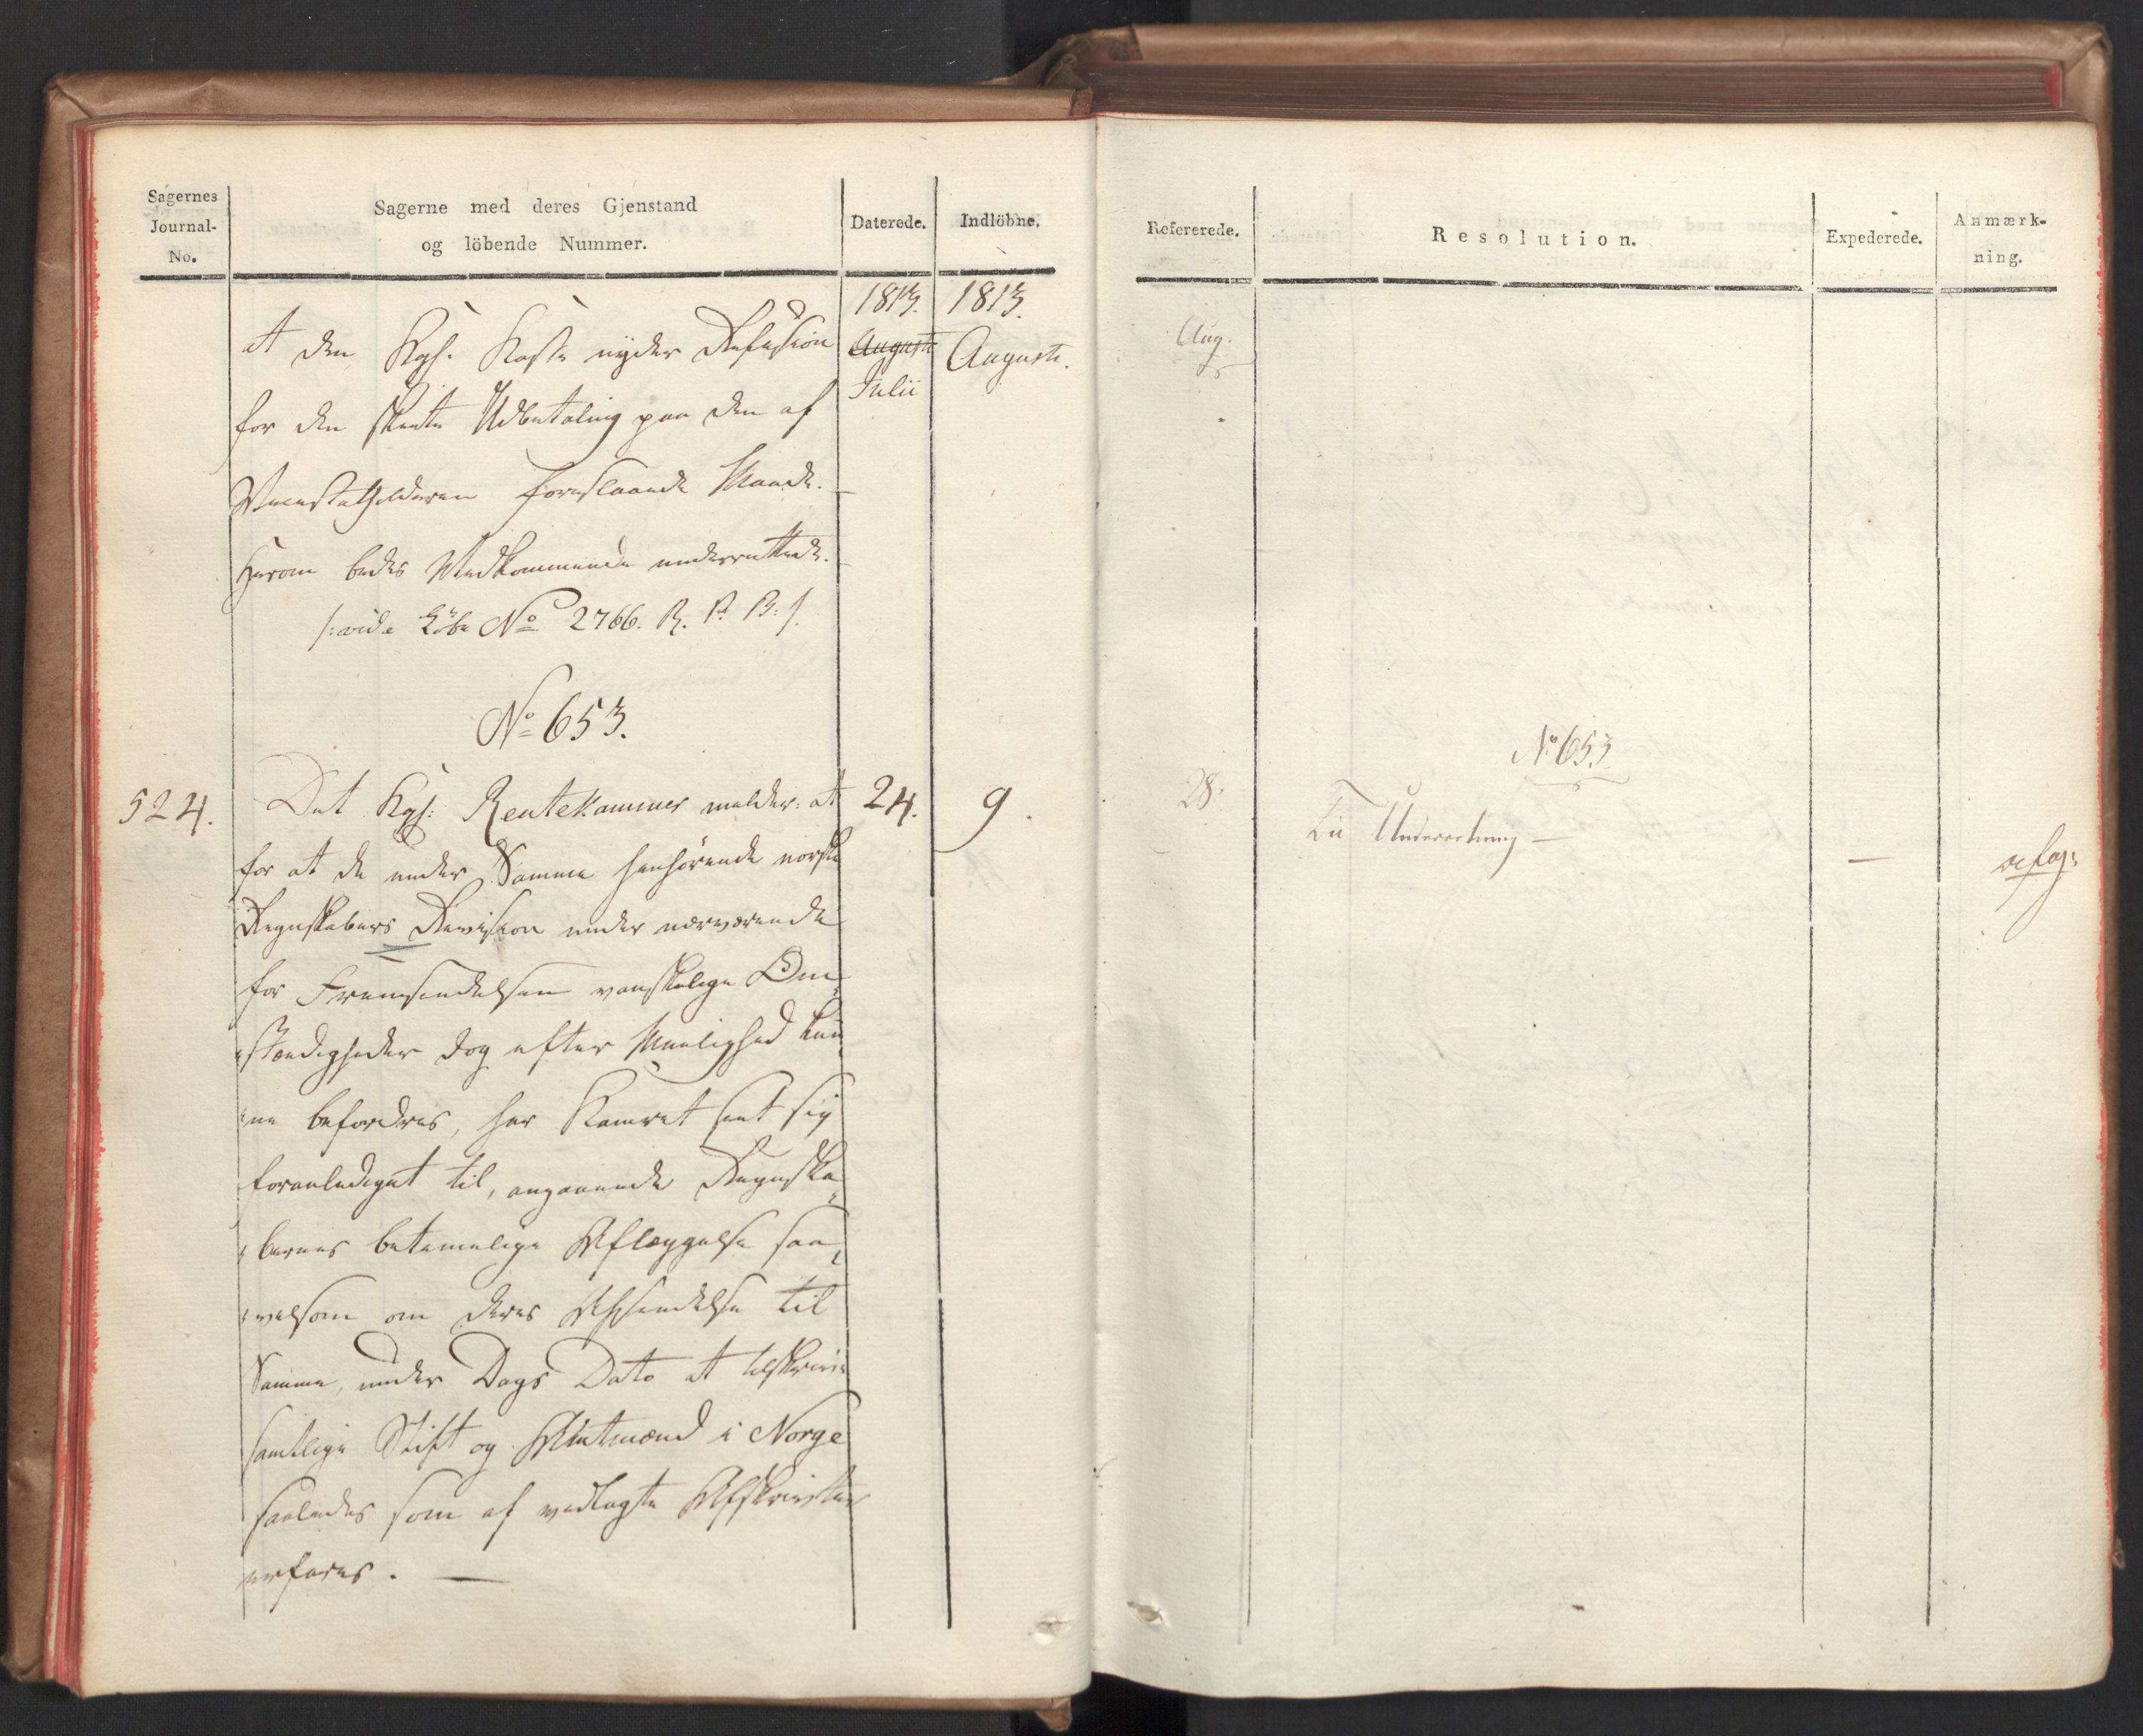 Sagernes
Journal-
No.
Sagerne med deres Gjenstand
og löbende Nummer.
Daterede.
Indlöbne.
1813.
1813.
Augusti
Julii
Augusti.
at den Kgl. Kasse nyder Refusion
for den skeete Udbetaling paa den af
Vicestatholderen foreslaaede Maade.
Herom bedes Vedkommende underrettede.
/: vide Löbe No 2766. R. P. B:/.
No 653.
524.
24.
9.
Det Kgl: Rentekammer melder: at
for at de under Samme henhörende norske
Regnskabers Revision under nærværende
for Fremsendelsen vanskelige Om-
stændigheder dog efter Muelighed kun-
ne befordres, har Kamret seet sig
foranlediget til, angaaende Regnska-
bernes betimelige Aflæggelse saa-
velsom om deres Afsendelse til
Samme, under Dags Dato at tilskrive
samtlige Stift og Amtmænd i Norge
saaledes som af vedlagte Afskrifter
erfares. —
Refererede.
Resolution.
Expederede.
Anmærk-
ning.
Aug.
No 653
28.
Til Underretning —
—